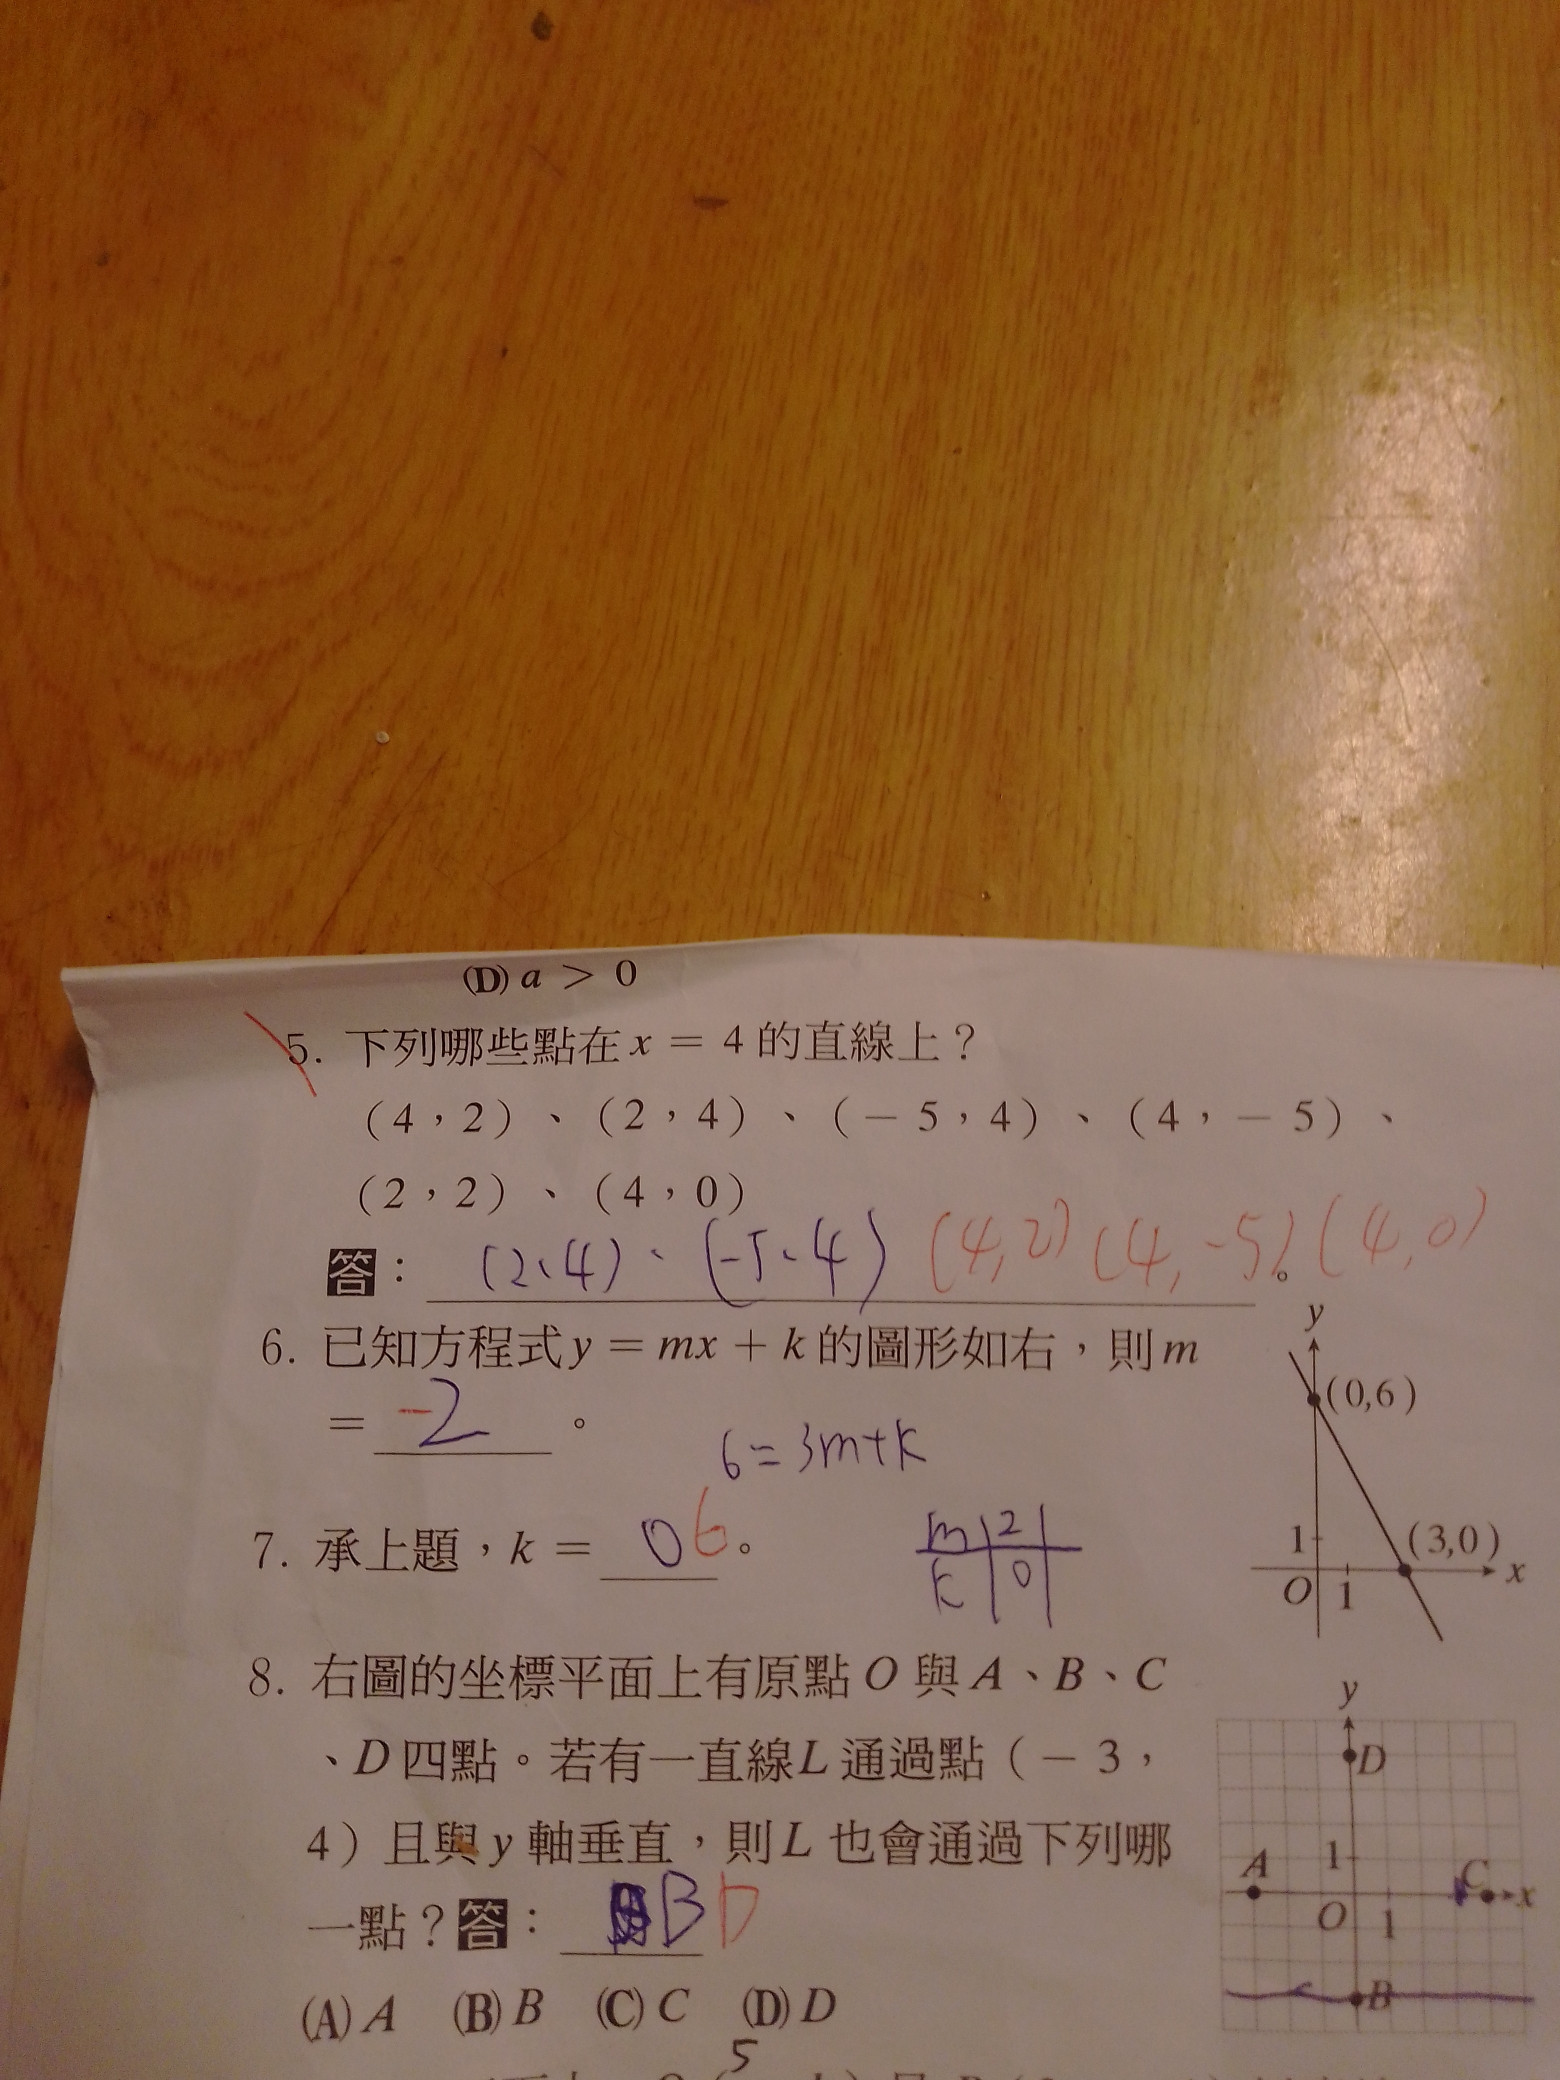 (D) a > 0
5. 下列哪些點在 x = 4 的直線上？
(4，2)、(2，4)、(－5，4)、(4，－5)、
(2，2)、(4，0)
答： (2、4)、(-5、4) (4,2) (4,-5)。(4,0)
6. 已知方程式 y = mx + k 的圖形如右，則 m
= -2 。
6=3m+k
7. 承上題，k = 0 6 。
m 2
k 0
y
(0,6)
1
(3,0)
O 1 x
8. 右圖的坐標平面上有原點 O 與 A、B、C
、D 四點。若有一直線 L 通過點 (－3，
4) 且與 y 軸垂直，則 L 也會通過下列哪
一點？答： B D
(A) A (B) B (C) C (D) D
y
D
A 1 C
O 1 x
B
5